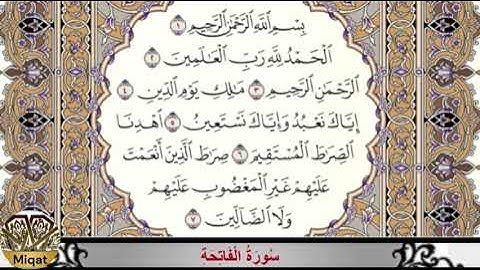 بِسْمِ ٱللَّهِ ٱلرَّحْمَٰنِ ٱلرَّحِيمِ ١
ٱلْحَمْدُ لِلَّهِ رَبِّ ٱلْعَٰلَمِينَ ٢
ٱلرَّحْمَٰنِ ٱلرَّحِيمِ ٣ مَٰلِكِ يَوْمِ ٱلدِّينِ ٤
إِيَّاكَ نَعْبُدُ وَإِيَّاكَ نَسْتَعِينُ ٥ ٱهْدِنَا
ٱلصِّرَٰطَ ٱلْمُسْتَقِيمَ ٦ صِرَٰطَ ٱلَّذِينَ أَنْعَمْتَ
عَلَيْهِمْ غَيْرِ ٱلْمَغْضُوبِ عَلَيْهِمْ
وَلَا ٱلضَّآلِّينَ ٧
سُورَةُ الْفَاتِحَةِ
Miqat